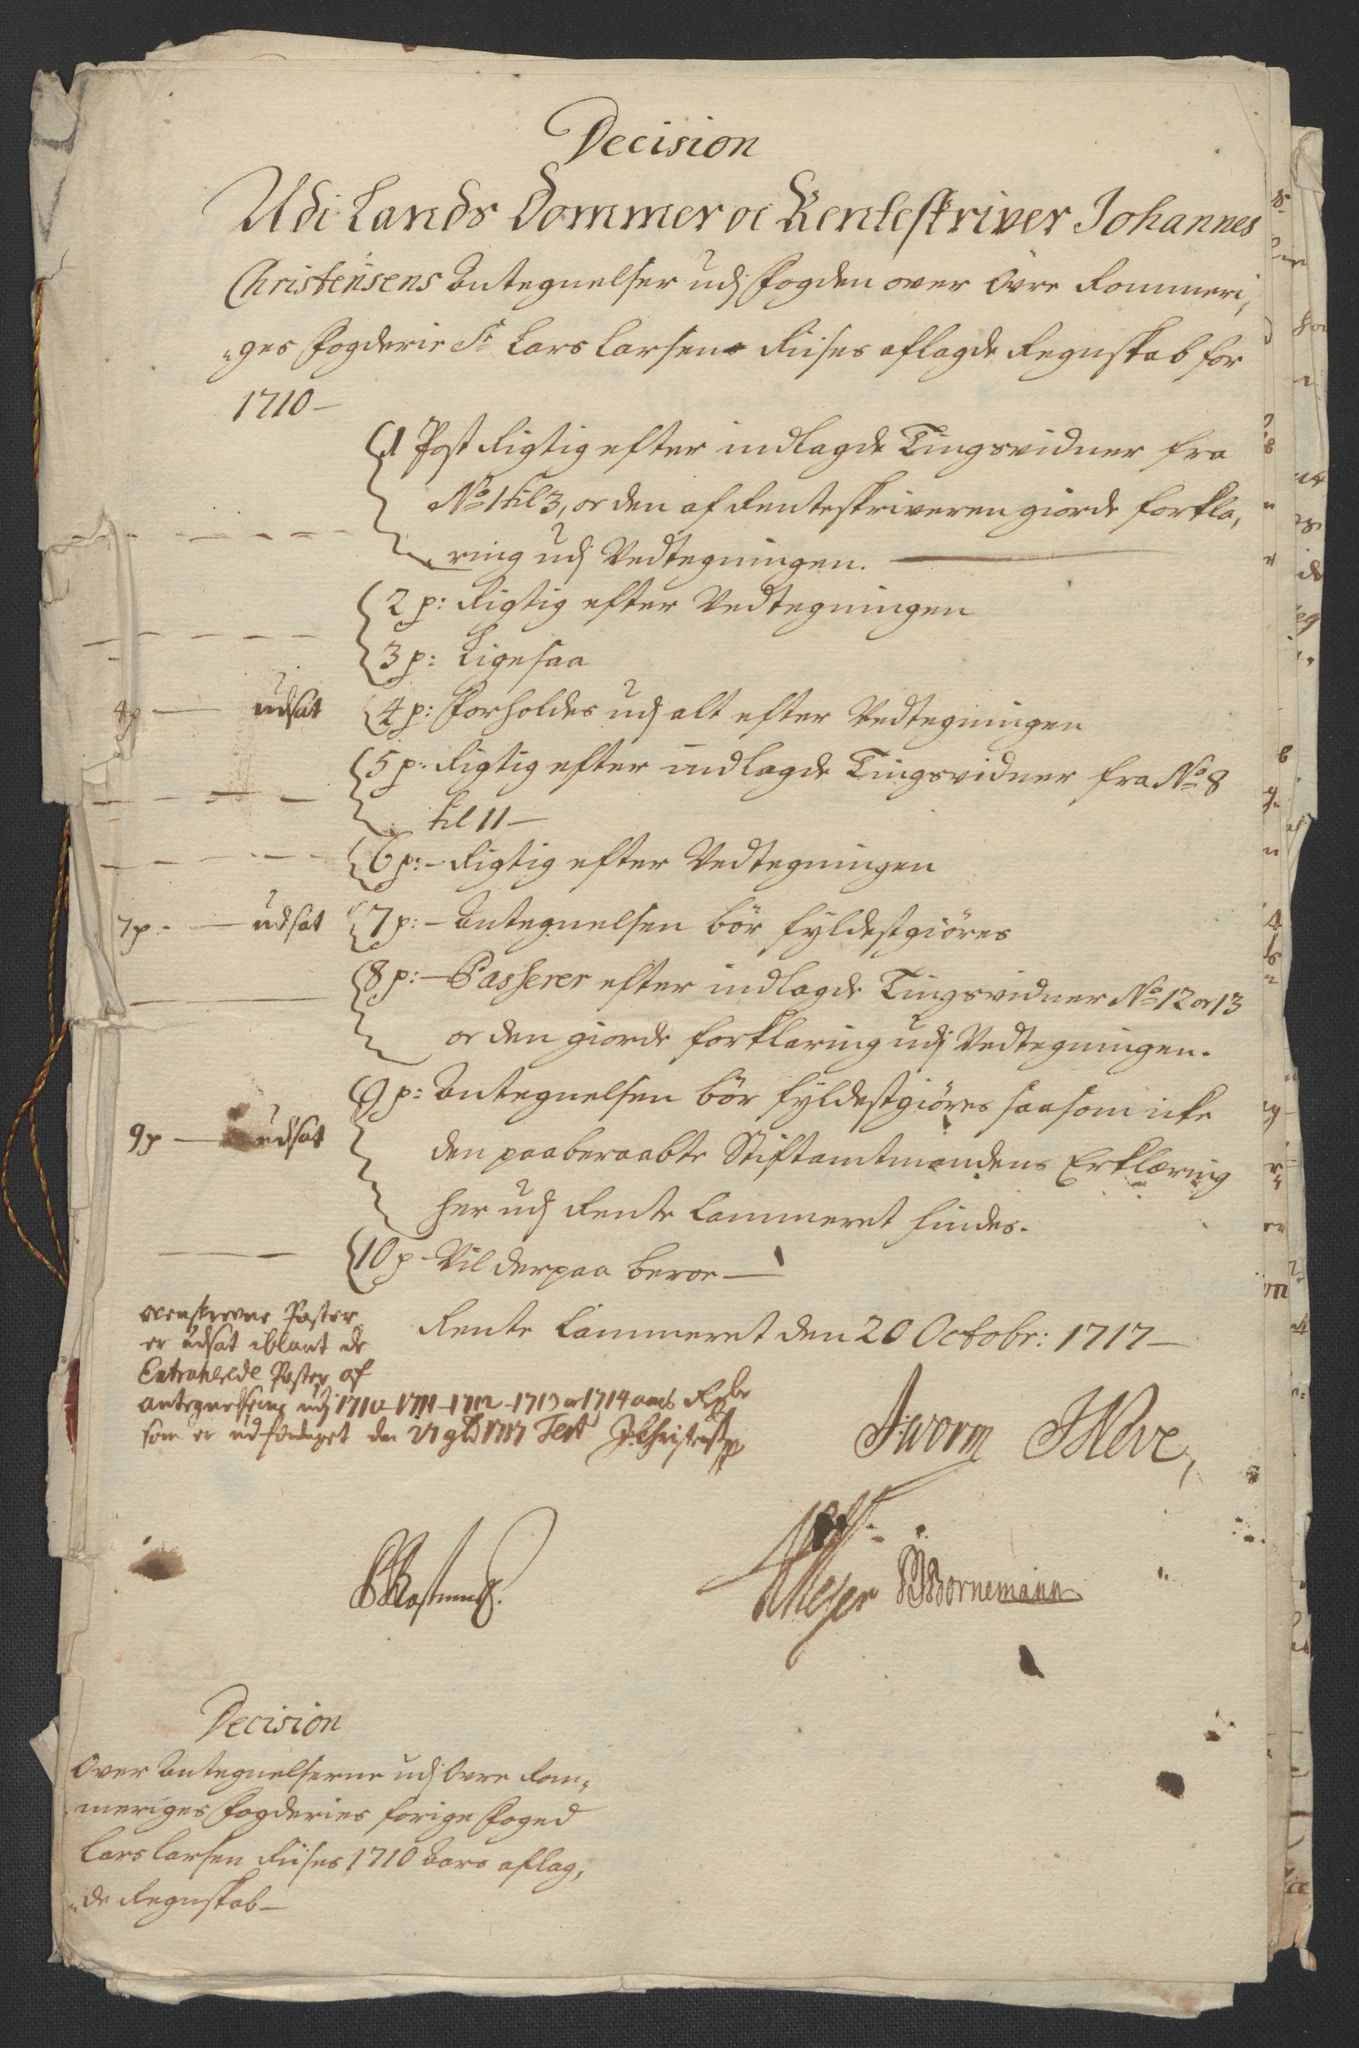 Decision
Udi Lands Dommer oc Renteskriver Johannes
Christensens Antegnelser udj Fogden over Öfre Rommeri,
ges Fogderie Sr Lars Larsens Riises aflagde Regnskab for
1710 —
1 Post Rigtig efter indlagde Tingsvidner fra
No 1 til 3, oc den af Renteskriveren giorde forkla,
ring udj Vedtegningen.
2 p: Rigtig efter Vedtegningen
3 p: Ligesaa
4p — udsat 4 p: Forholdes udj alt efter Vedtegningen
5 p: Rigtig efter indlagde Tingsvidner fra No 8
til 11 —
6 p: — Rigtig efter Vedtegningen
7p: — udsat 7 p: — Antegnelsen bör fyldestgiöres
8 p: — Passerer efter indlagde Tingsvidner No 12 oc 13
oc den giorde forklaring udj Vedtegningen.
9p — udsat 9 p: Antegnelsen bör fyldestgiöres saasom icke
den paaberaabte Stiftamtmandens Erklæring
her udj Rente Cammeret findes.
10 p — Vil derpaa beroe —
Rente Cammeret den 20 Octobr: 1717 —
ovenskrevne Poster
er udsat iblant de
Extraherede Poster af
antegnelserne udj 1710 - 1711 - 1712 - 1713 oc 1714 aars
som er udfærdiget den 27 9br 1717 Test JChristensen
AWorm
Meyer Bornemann
Decision
Over Antegnelserne udj Övre Rom,
meriges Fogderies forige Foged
Lars Larsen Riises 1710 Aars aflag,
de Regnskab —